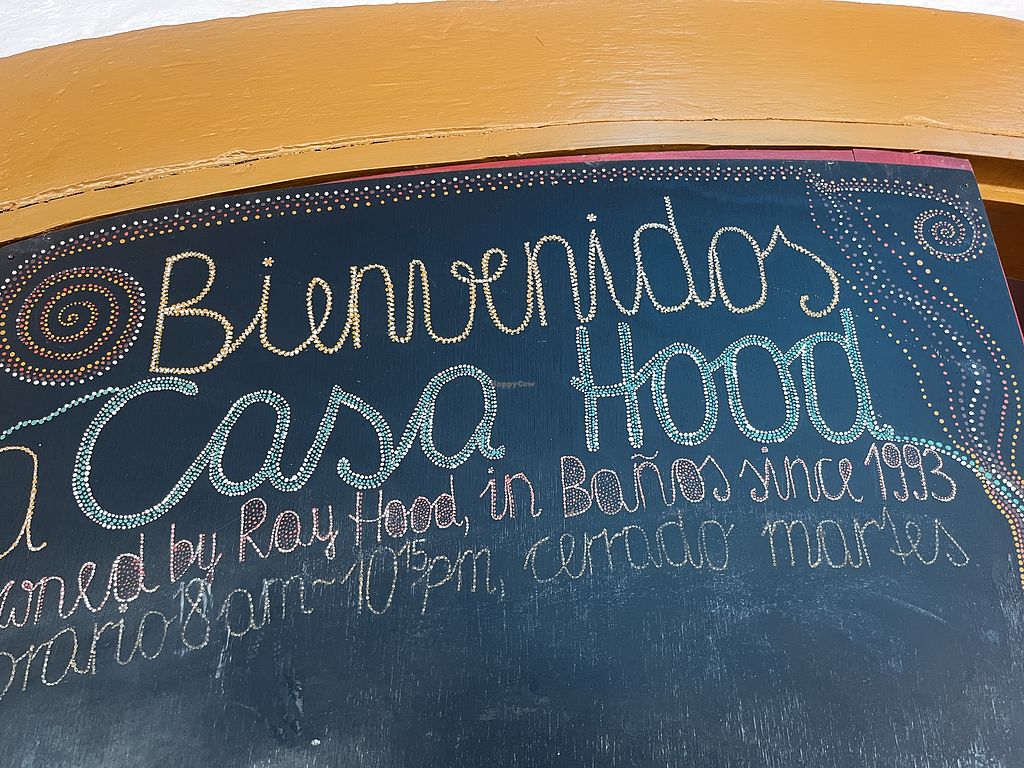 Bienvenidos
a Casa Hood
owned by Ray Hood, in Baños since 1993
horario 8 am~10¹⁵pm, cerrado martes
HappyCow